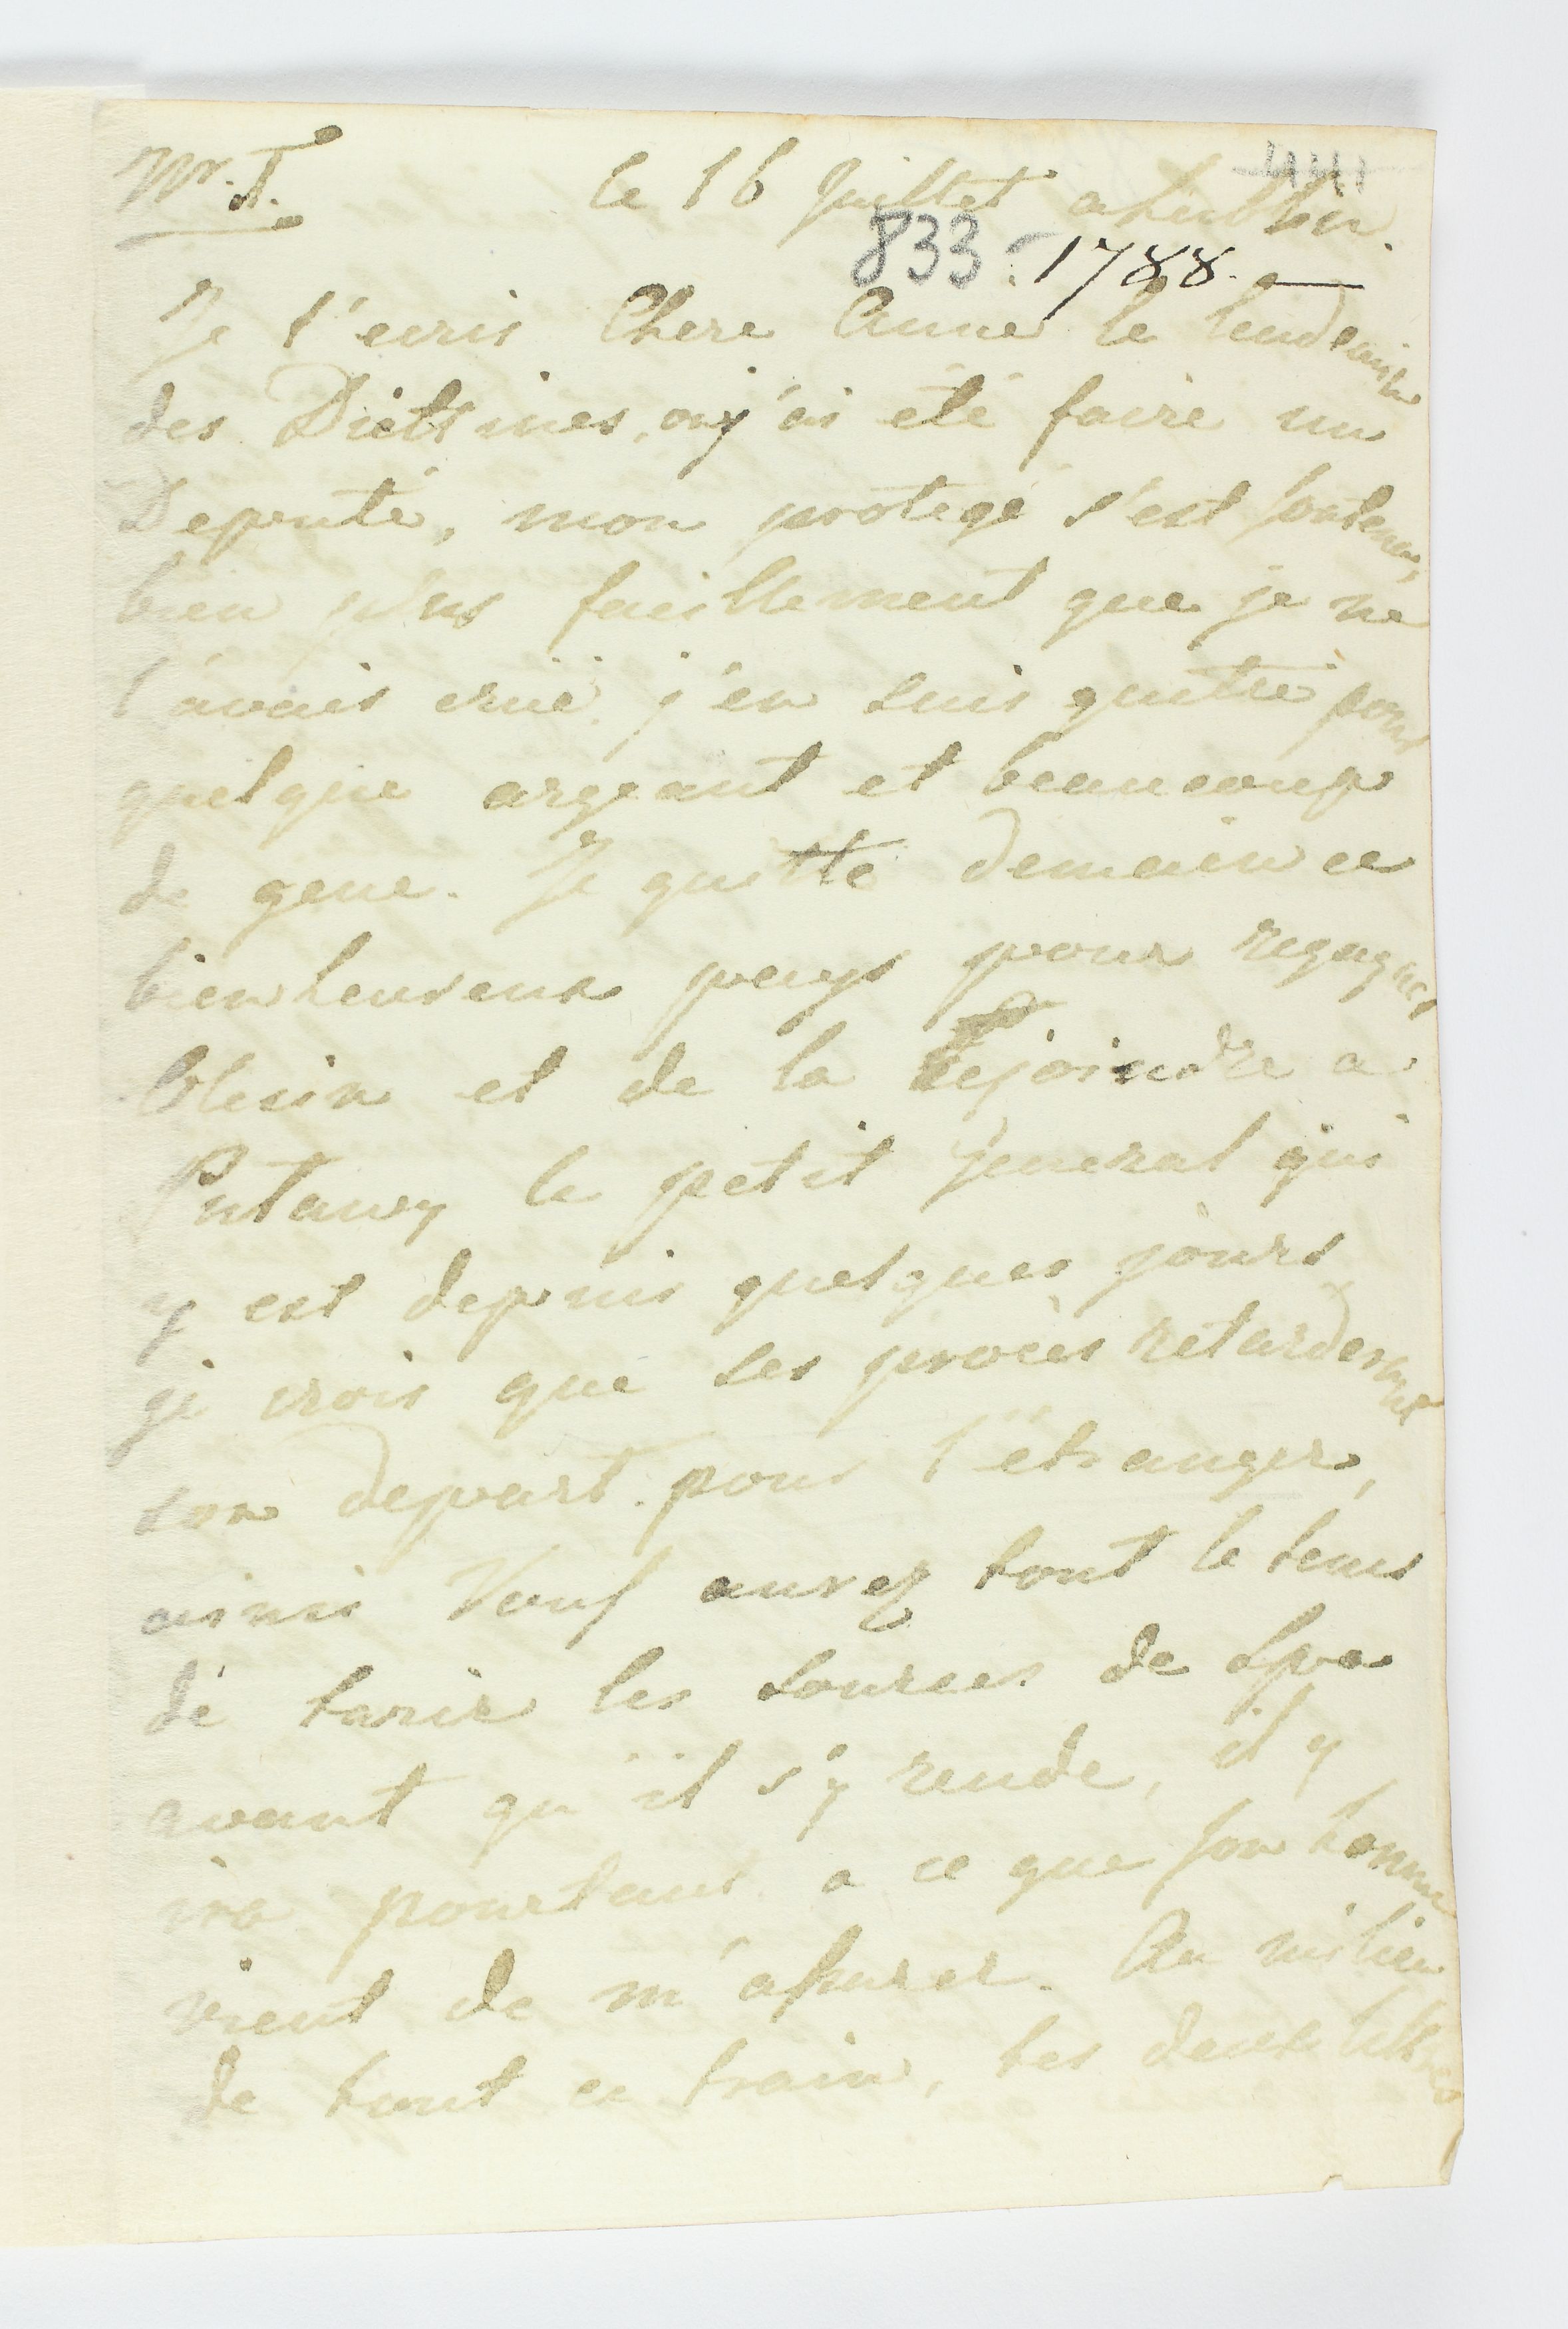 Nr. I. le 16 Juillet a Lublin.
441
833. 1788.
Je t'ecris Chere Anne le lendemain
des Diettines, ou j'ai été faire un
Deputé, mon protegé s'est soutenu,
bien plus facillement que je ne
l'avais crüe j'en suis quitte pour
quelque argeant et beaucoup
de gene. Je quitte demain ce
bienheureux pays pour regagner
Olesin et de la rejoindre a
Putawy le petit general qui
y est depuis quelques jours
je crois que ses procès retarderont
son depart pour l'étranger,
ainsi Vous aurez tout le tems
de tarir les sources de Spa
avant qu'il s'y rende, il y
ira pourtant a ce que son homme
vient de m'assurer. Au milieu
de tout ce train, tes deux lettres